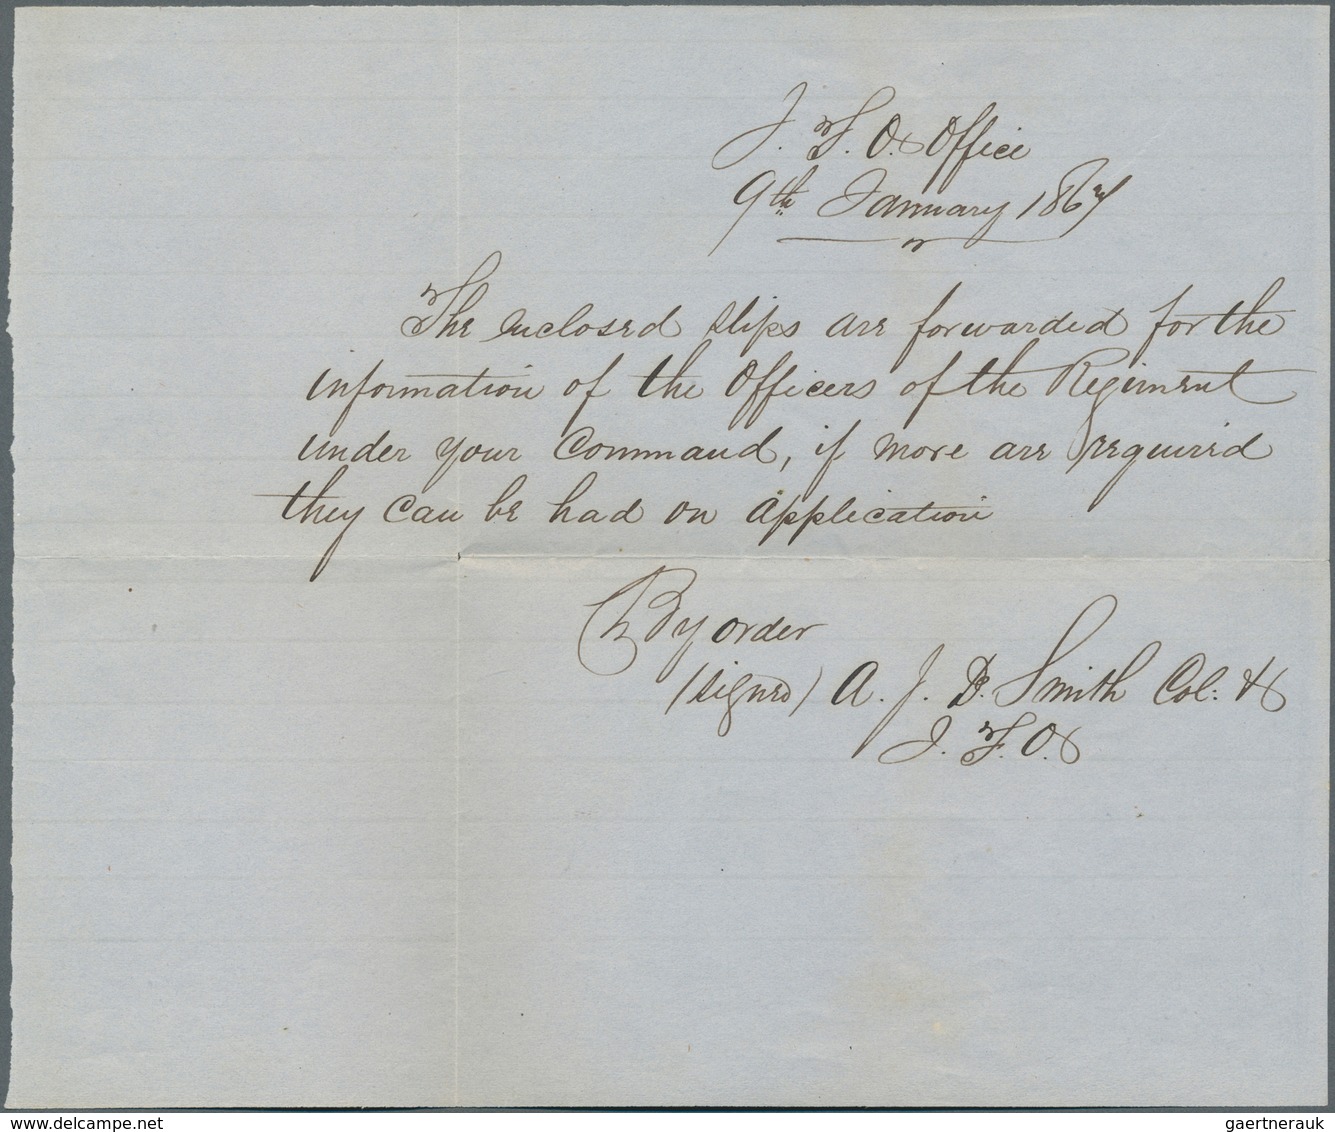 I. F. O. Office
9th January 1867
The enclosed slips are forwarded for the
information of the Officers of the Regiment
under your Command, if more are required
they can be had on application
By order
(signed) A. J. D. Smith Col: &
I. F. O.
gaertnerauk
www.delcampe.net